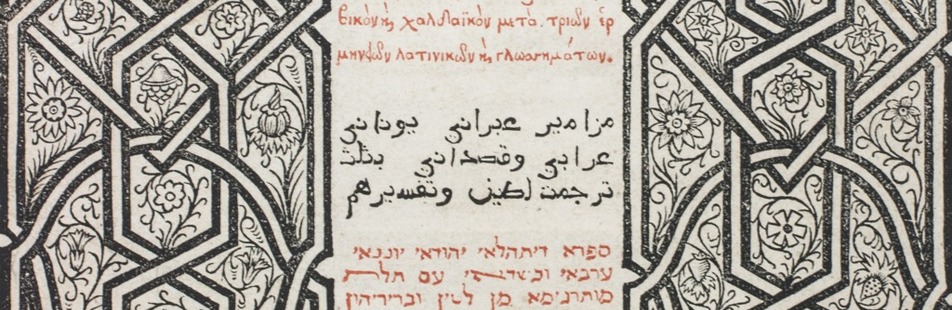 βικὸν καὶ χαλδαϊκὸν μετὰ. τριῶν ἑρ
μηνεῶν λατινικῶν καὶ γλωσημάτων.
مزامير عبراني يوناني
عرابي وقصداني بثلث
ترجمت لطين وتفسيرهم
ספרא דיתהלאי יהודאי יוננאי
ערבאי וכשדאי עם תלת
מותרגימא מן לטין ובריריהון